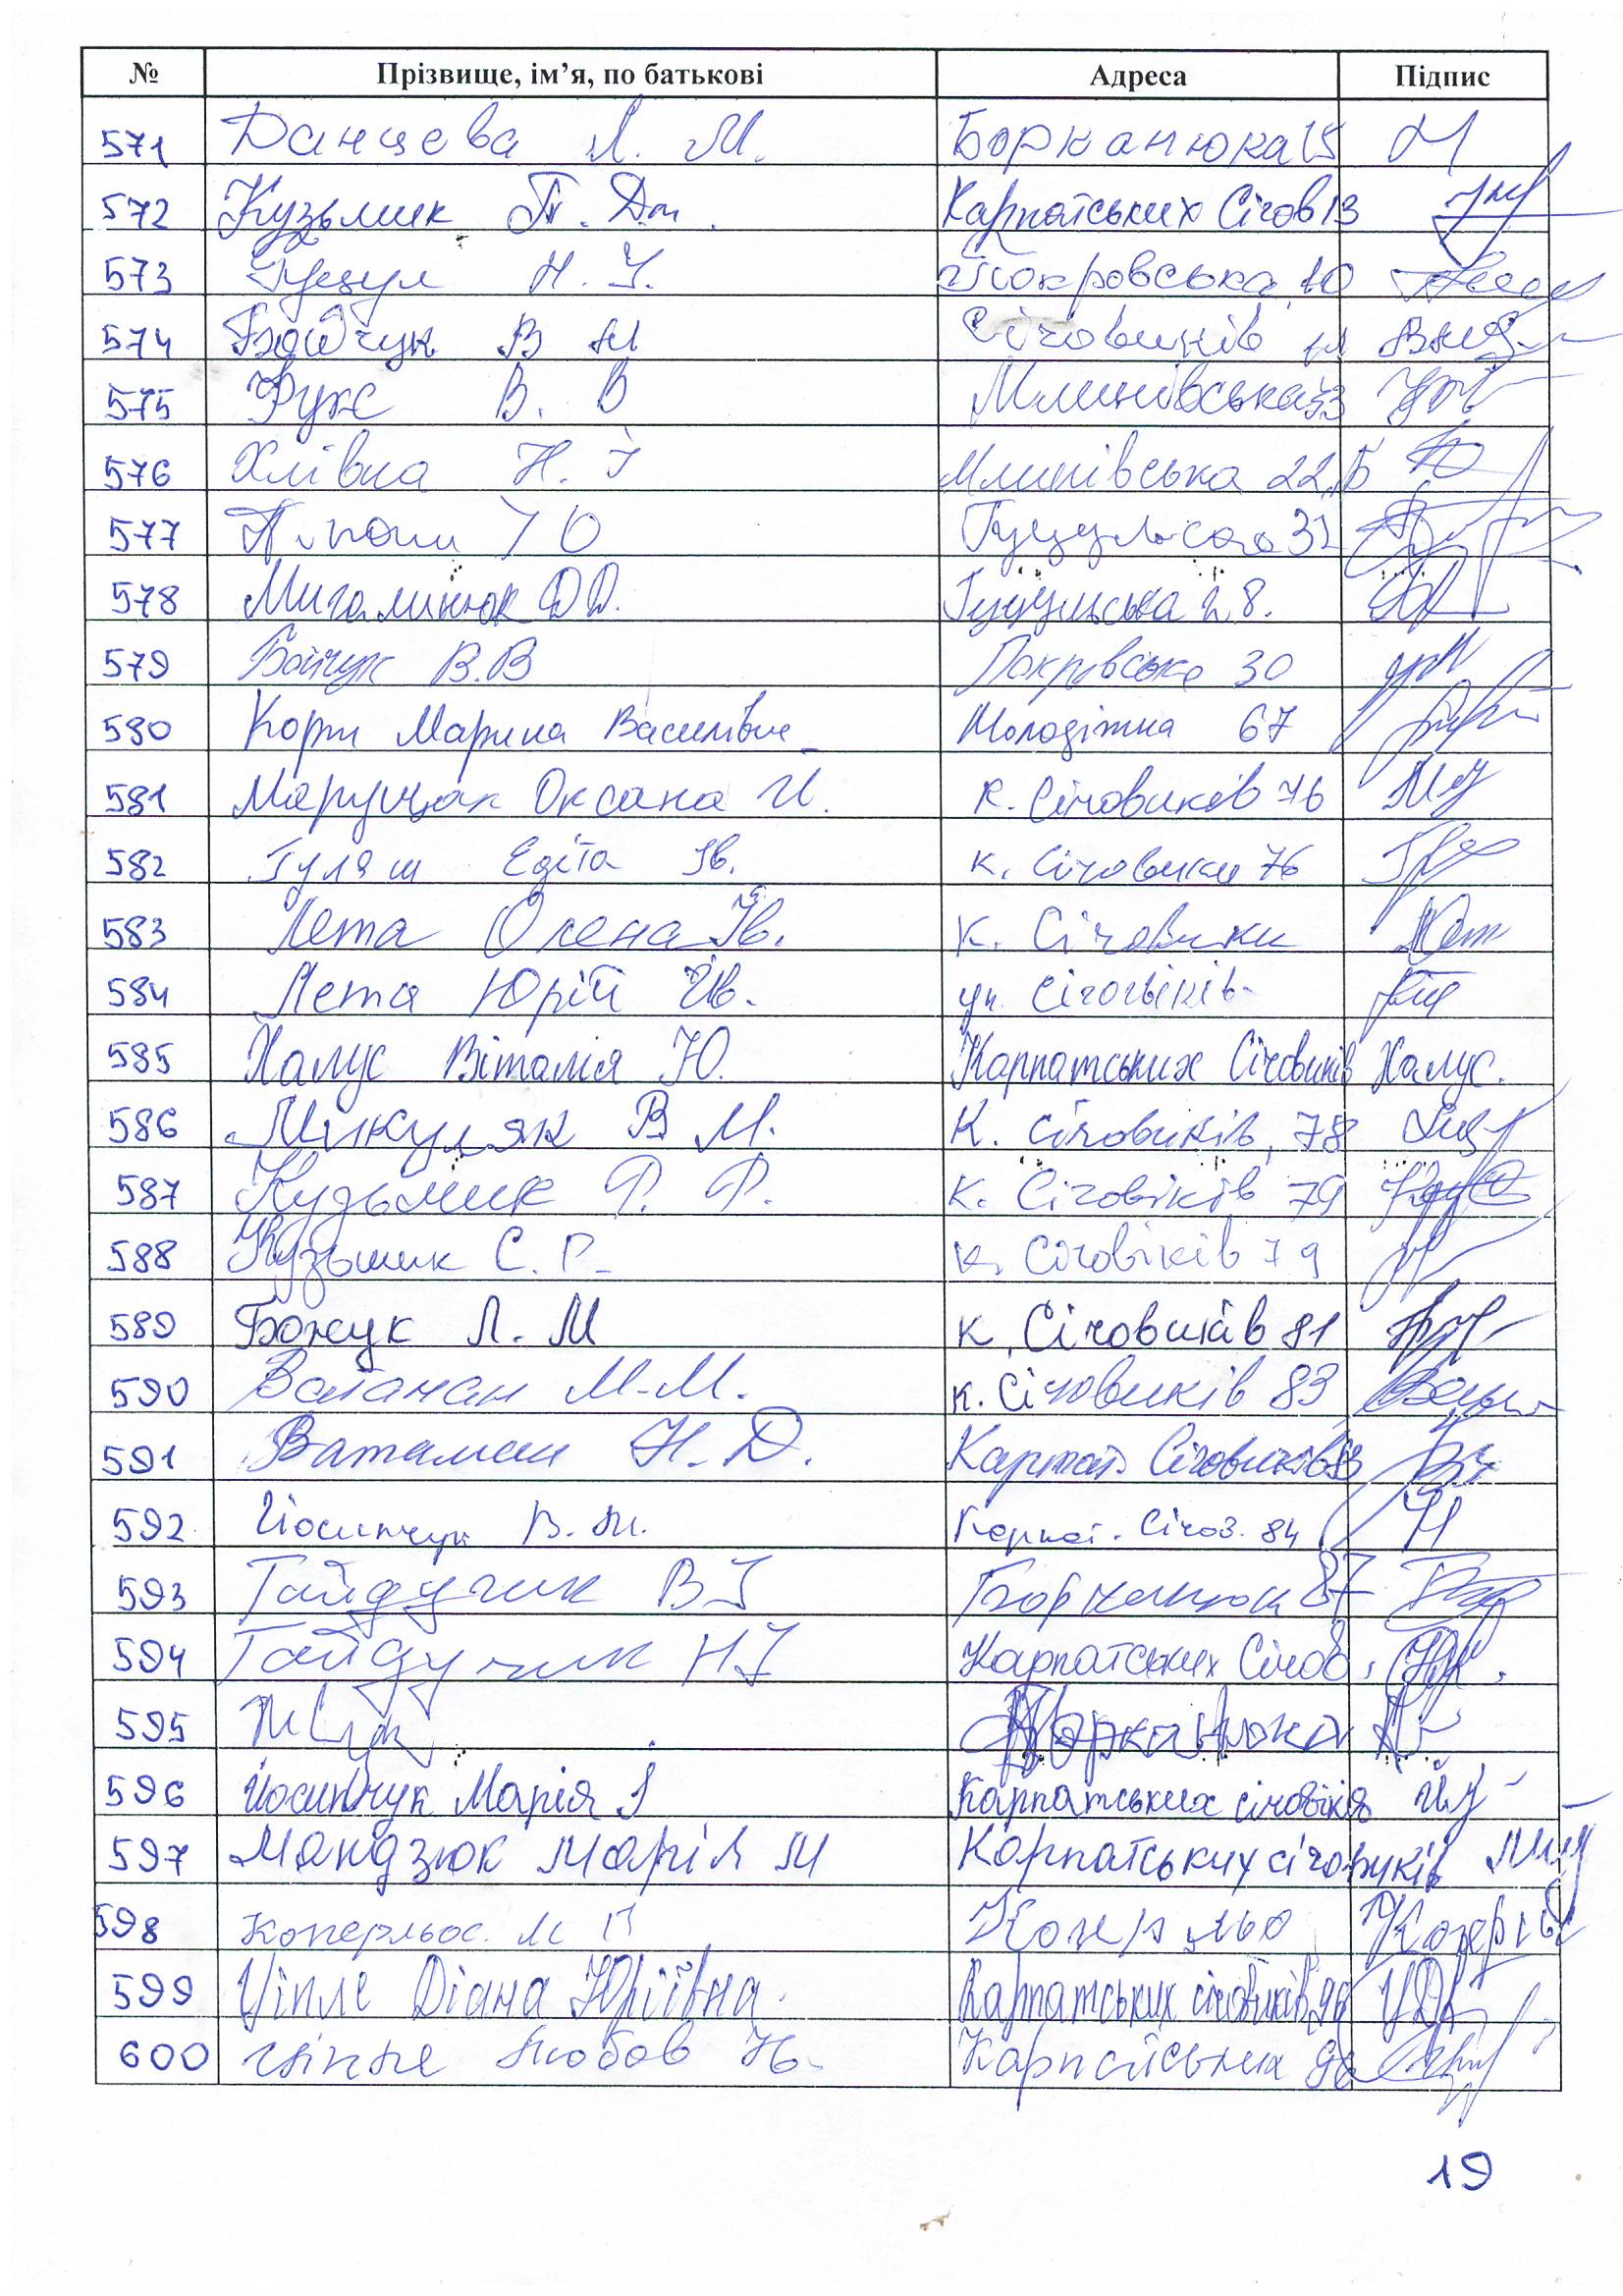 № Прізвище, ім’я, по батькові Адреса Підпис
571 Данцева Л. М. Борканюка 15
572 Кузьмик П. Дм. Карпатських Січов 13
573 Гуцул Н. І. Покровська 10
574 Бойчук В М Січовиків
575 Фукс В. В Млинівська 33
576 Хлівка Н. І Млинівська 22 Б
577 Ю Гуцульська 32
578 Мигалинюк Д Д. Гуцульська 28.
579 Бойчук В. В Покровська 30
580 Марина Василівна Молодіжна 67
581 Марущак Оксана И. к. Січовиків 76
582 Гуляш Едіта Ів. к. Січовики 76
583 Лета Олена Ів. к. Січовики
584 Лета Юрій Ів. ул. Січовіків
585 Халус Віталія Ю. Карпатських Січовиків Халус.
586 Микуляк В М. К. Січовиків, 78
587 Кузьмик Р. Р. к. Січовіків 79
588 Кузьмик С. Г. к. Січовіків 79
589 Божук Л. М к. Січовиків 81
590 Ватаман М. М. к. Січовиків 83
591 Ватаман Н. Д. Карпат. Січовиків 83
592 Йосипчук В. М. Карпат. Січов. 84
593 Гайдучик В І 87
594 Гайдучик Н І Карпатських Січов.
595 Борканюка
596 Йосипчук Марія І Карпатських січовіків
597 Мандзюк Марія М Карпатських січовуків
598 Коперльос. М П
599 Ціпле Діана Юріївна. Карпатських січовиків 96
600 Ціпле Любов Ю. Карпатських 96
19